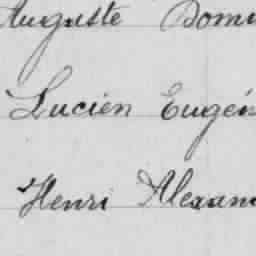 Auguste Domi
Lucien Eugén
Henri Alexan